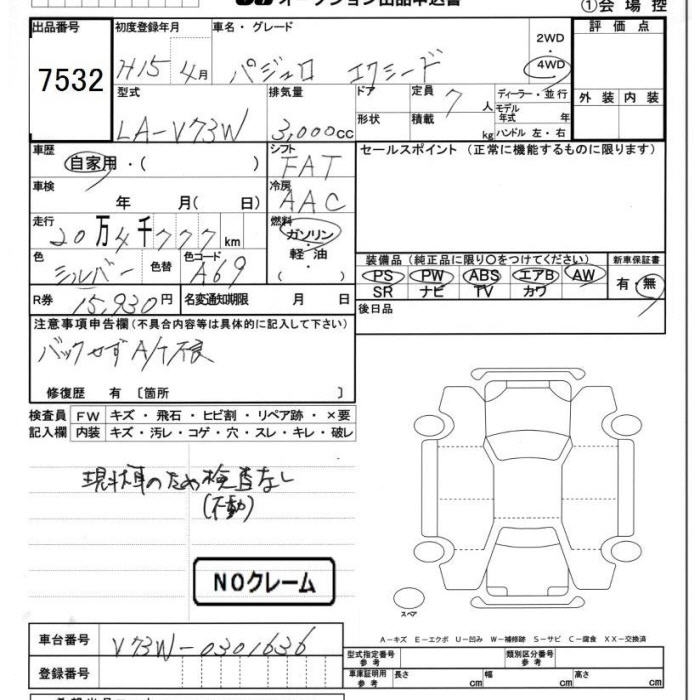 オークション出品申込書
①会場控
出品番号 7532
初度登録年月 H15 4月
車名・グレード パジェロ エクシード
2WD
・
4WD
評価点
外装 内装
型式 LA-V73W
排気量 3,000cc
ドア
形状
定員 7人
積載 kg
ディーラー・並行
モデル年式 年
ハンドル 左・右
車歴 自家用・( )
シフト FAT
セールスポイント (正常に機能するものに限ります)
車検 年 月( 日)
冷房 AAC
走行 20万4千777km
燃料 ガソリン・軽油・( )
色 シルバー 色替 色コード A69
装備品 (純正品に限り○をつけてください)
PS PW ABS エアB AW
SR ナビ TV カワ
新車保証書 有・無
R券 15,930円 名変通知期限 月 日
後日品
注意事項申告欄 (不具合内容等は具体的に記入して下さい)
バックせず A/T不良
修復歴 有 〔箇所 〕
検査員 FW キズ・飛石・ヒビ割・リペア跡・×要
記入欄 内装 キズ・汚レ・コゲ・穴・スレ・キレ・破レ
現状車のため検査なし
(不動)
NOクレーム
スペア
A-キズ E-エクボ U-凹み W-補修跡 S-サビ C-腐食 XX-交換済
車台番号 V73W-0301636
登録番号
型式指定番号 参考
類別区分番号 参考
車庫証明用 参考 長さ cm 幅 cm 高さ cm